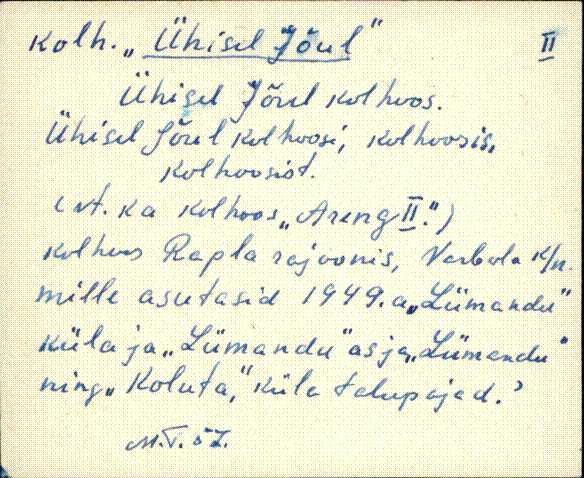 Kolh. „Ühisel Jõul"
II
Ühisel Jõul kolhoos.
Ühisel Jõul kolhoosi, kolhoosis,
kolhoosist.
(vt. ka kolhoos „Areng II.")
kolhoos Rapla rajoonis, Varbola k/n.
mille asutasid 1949. a „Lümandu"
küla ja „Lümandu" as ja „Lümandu"
ning „Koluta," küla talupojad.
M.T. 57.